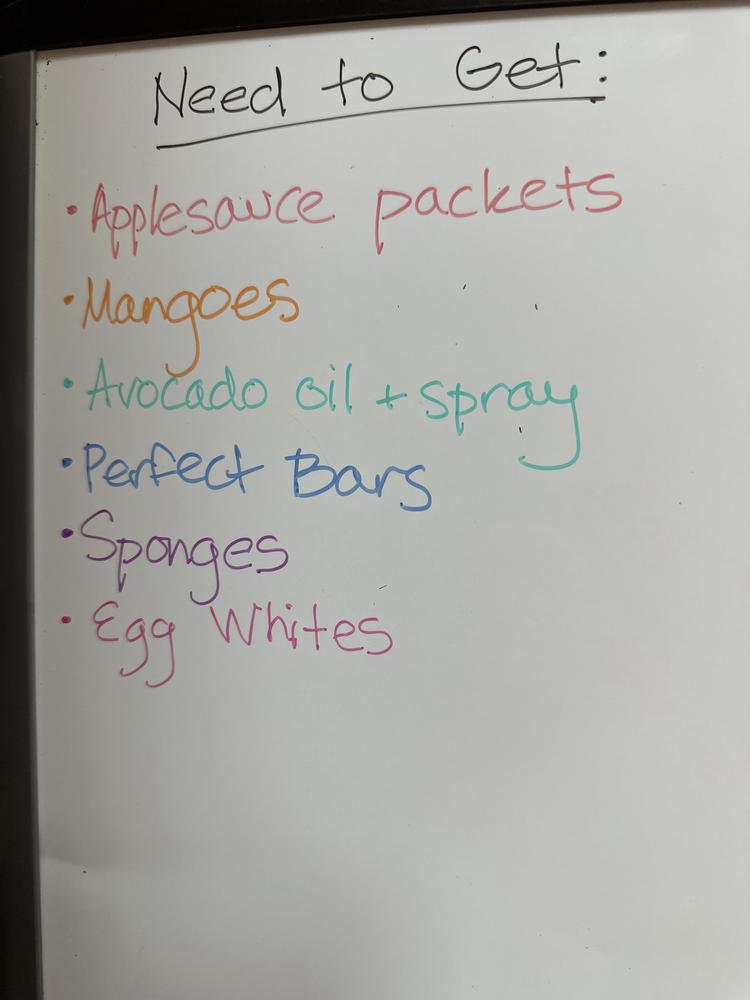 Need to Get:
• Applesauce packets
• Mangoes
• Avocado oil + spray
• Perfect Bars
• Sponges
• Egg Whites